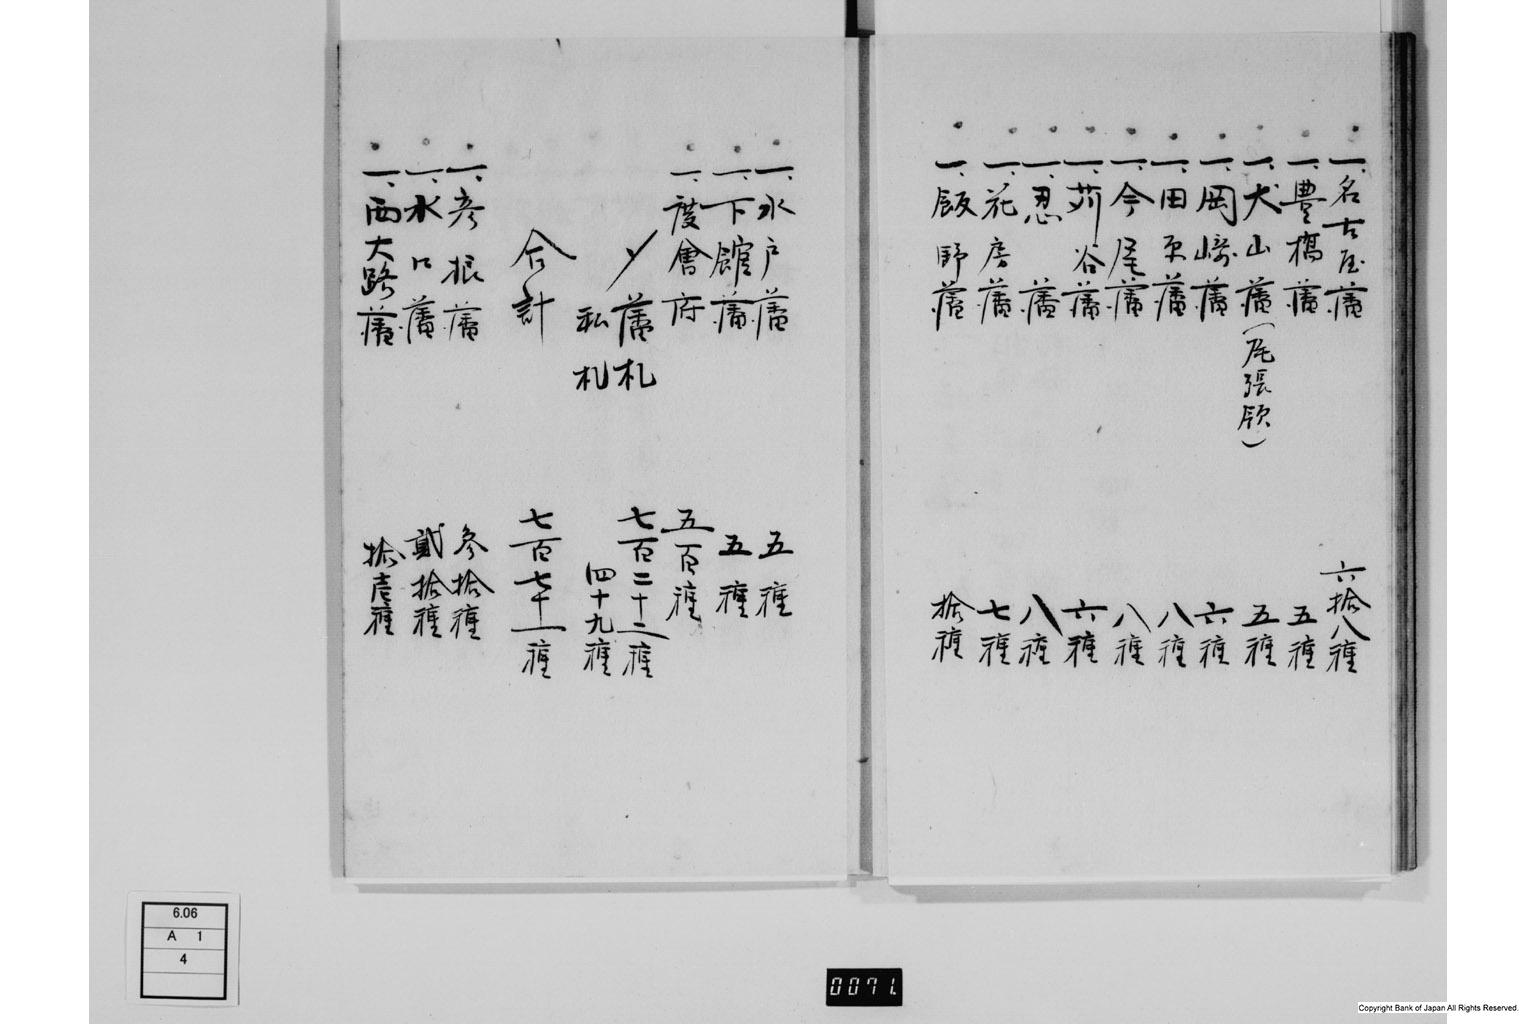 一、名古屋藩 六拾八種
一、豊橋藩 五種
一、犬山藩(尾張領) 五種
一、岡崎藩 六種
一、田原藩 八種
一、今尾藩 八種
一、苅谷藩 六種
一、忍藩 八種
一、花房藩 七種
一、飯野藩 拾種
一、水戸藩 五種
一、下館藩 五種
一、度會府 五百種
〆藩札 七百二十二種
私札 四十九種
合計 七百七十一種
一、彦根藩 参拾種
一、水口藩 貳拾種
一、西大路藩 拾壱種
6.06
A 1
4
0071.
Copyright Bank of Japan All Rights Reserved.